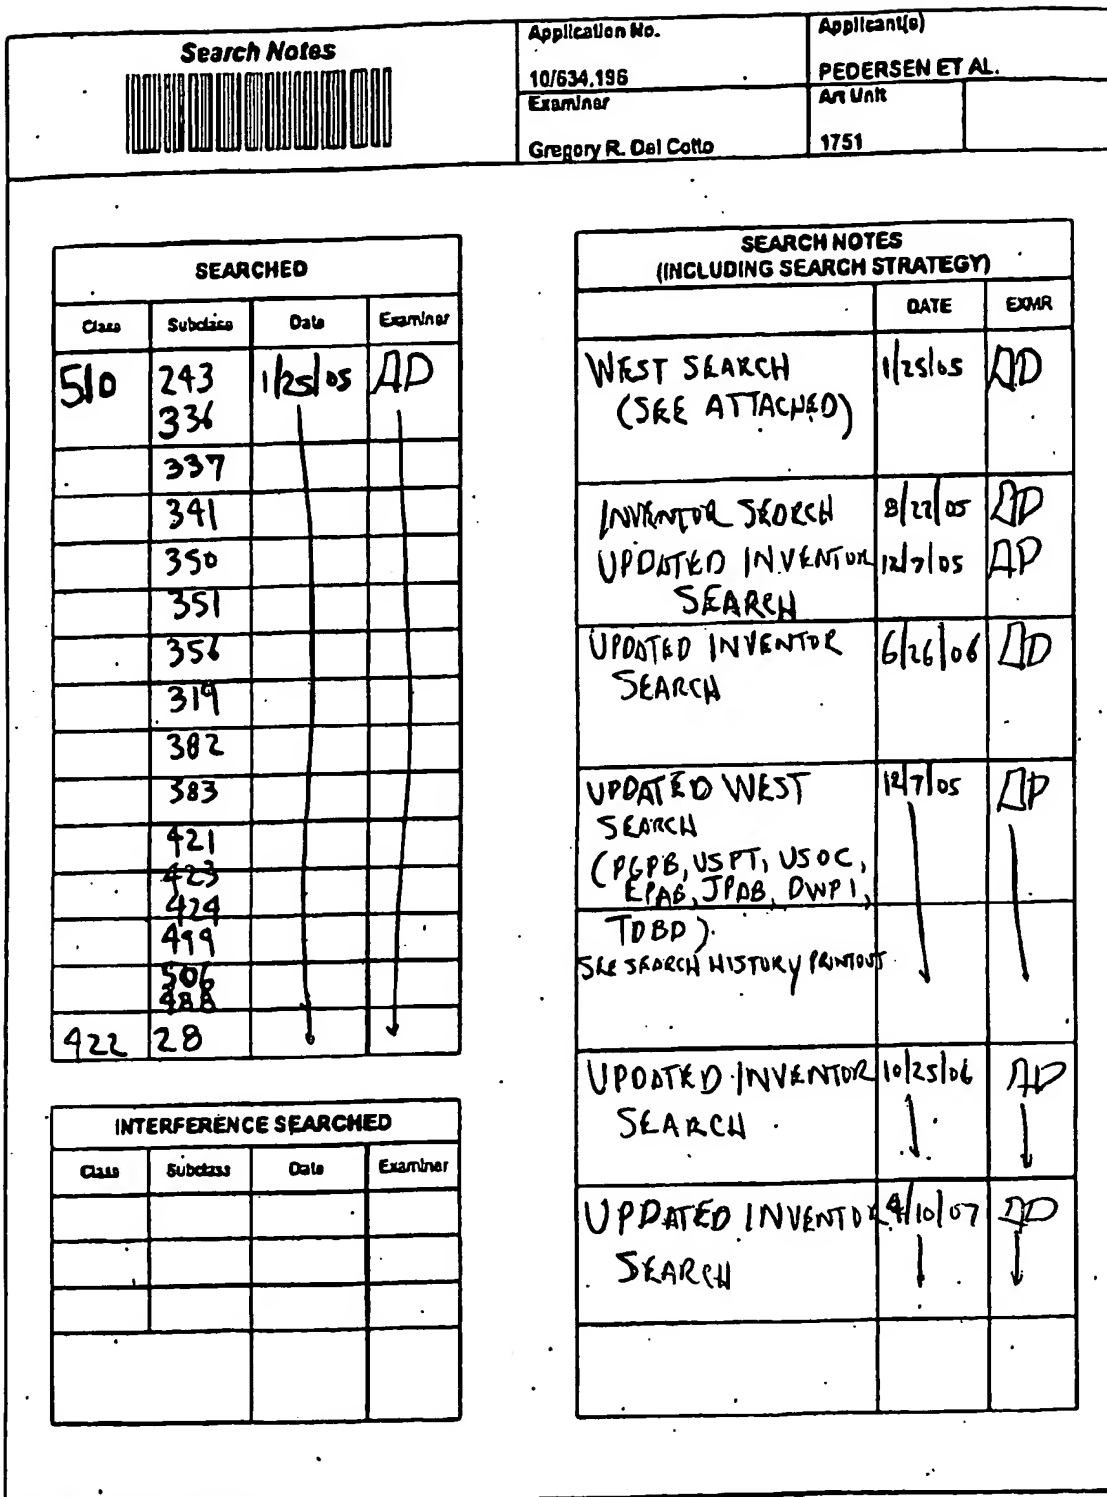 Search Notes
Application No.
10/634,196
Applicant(s)
PEDERSEN ET AL.
Examiner
Gregory R. Del Cotto
Art Unit
1751
SEARCHED
Class Subclass Date Examiner
510 243 1/25/05
336
337
341
350
351
356
319
382
383
421
423
424
499
506
488
422 28
INTERFERENCE SEARCHED
Class Subclass Date Examiner
SEARCH NOTES
(INCLUDING SEARCH STRATEGY)
DATE EXMR
WEST SEARCH 1/25/05
(SEE ATTACHED)
INVENTOR SEARCH 8/22/05
UPDATED INVENTOR 12/7/05
SEARCH
UPDATED INVENTOR 6/26/06
SEARCH
UPDATED WEST 12/7/05
SEARCH
(PGPB, USPT, USOC,
EPAB, JPAB, DWPI,
TDBD).
SEE SEARCH HISTORY PRINTOUT
UPDATED INVENTOR 10/25/06
SEARCH
UPDATED INVENTOR 4/10/07
SEARCH